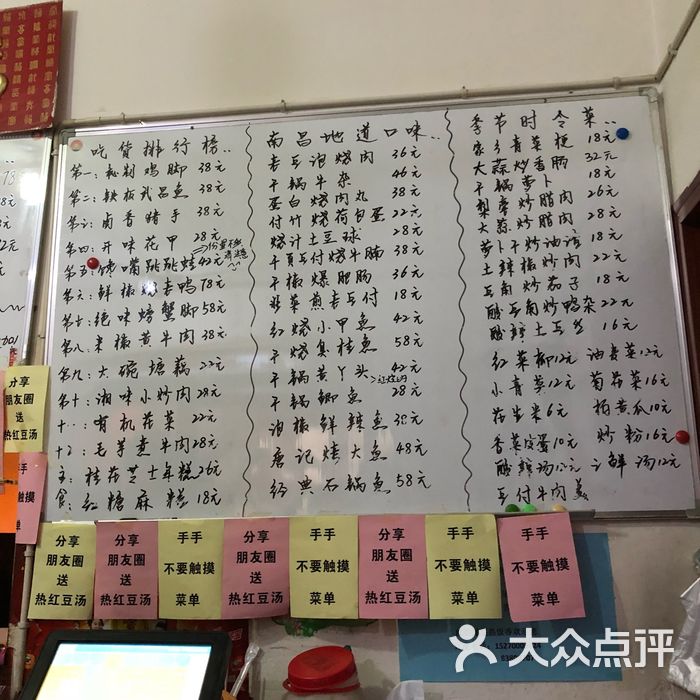 吃货排行榜..
第一：秘制鸡脚 38元
第二：铁板武昌鱼 38元
第三：卤香猪手 38元
第四：开味花甲 28元
第五：馋嘴跳跳蛙 42元
第六：鲜椒 老鸭 78元
第七：绝味螃蟹脚 58元
第八：米椒黄牛肉 38元
第九：大碗塘藕 22元
第十：湘味小炒肉 28元
十一：有机花菜 22元
十二：毛芋煮牛肉 28元
主：桂花芝士年糕 26元
食：红糖麻糍 18元
南昌地道口味..
老与油烧肉 36元
干锅牛杂 46元
蛋白烧肉丸 38元
付竹烧荷包蛋 22元
烧汁土豆球 28元
千页与付烧牛腩 38元
干椒爆腊肠 36元
韭菜煎老与付 18元
红烧小甲鱼 42元
干烧臭桂鱼 58元
干锅黄丫头 42元
干锅鲫鱼 28元
油椒鲜辣鱼 38元
唐记烤大鱼 48元
经典石锅鱼 58元
季节时令菜..
家乡青菜梗 18元
大蒜炒香肠 32元
干锅萝卜 18元
藜蒿炒腊肉 26元
大蒜炒腊肉 28元
萝卜干炒油渣 18元
土辣椒炒肉 22元
与角炒茄子 18元
酸与角炒鸭杂 22元
酸辣土与丝 16元
红菜柳12元 油麦菜12元
小青菜12元 菊花菜16元
花生米6元 拍黄瓜10元
香菜皮蛋10元 炒粉16元
酸辣汤12元 三鲜汤12元
与付牛肉羹
分享
朋友圈
送
热红豆汤
手手
不要触摸
菜单
分享
朋友圈
送
热红豆汤
分享
朋友圈
送
热红豆汤
手手
不要触摸
菜单
分享
朋友圈
送
热红豆汤
手手
不要触摸
菜单
分享
朋友圈
送
热红豆汤
手手
不要触摸
菜单
手手
不要触摸
菜单
大众点评